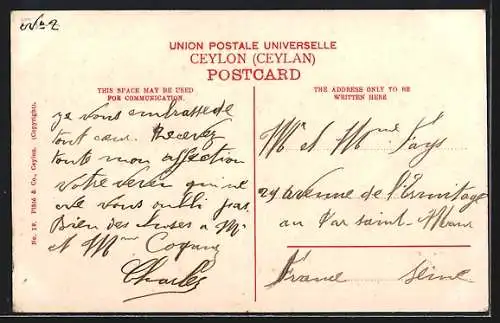 No 2
UNION POSTALE UNIVERSELLE
CEYLON (CEYLAN)
POSTCARD
THIS SPACE MAY BE USED
FOR COMMUNICATION.
THE ADDRESS ONLY TO BE
WRITTEN HERE
No. 18. Plâté & Co., Ceylon. (Copyright).
je vous embrasse de
tout cœur. Recevez
toute mon affection
votre neveu qui ne
vous oubli pas
Bien des choses a Mr
et Mme
Charles
Mr et Mme Fays
29 avenue de l'Ermitage
au Par saint-Maur
France Seine